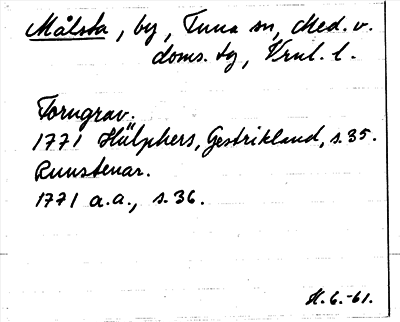 Målsta, by, Tuna sn, Med. v.
doms. tg, Vrnl. l.
Forngrav.
1771 Hülphers, Gestrikland, s. 35.
Runstenar.
1771 a.a., s. 36.
H. 6.-61.